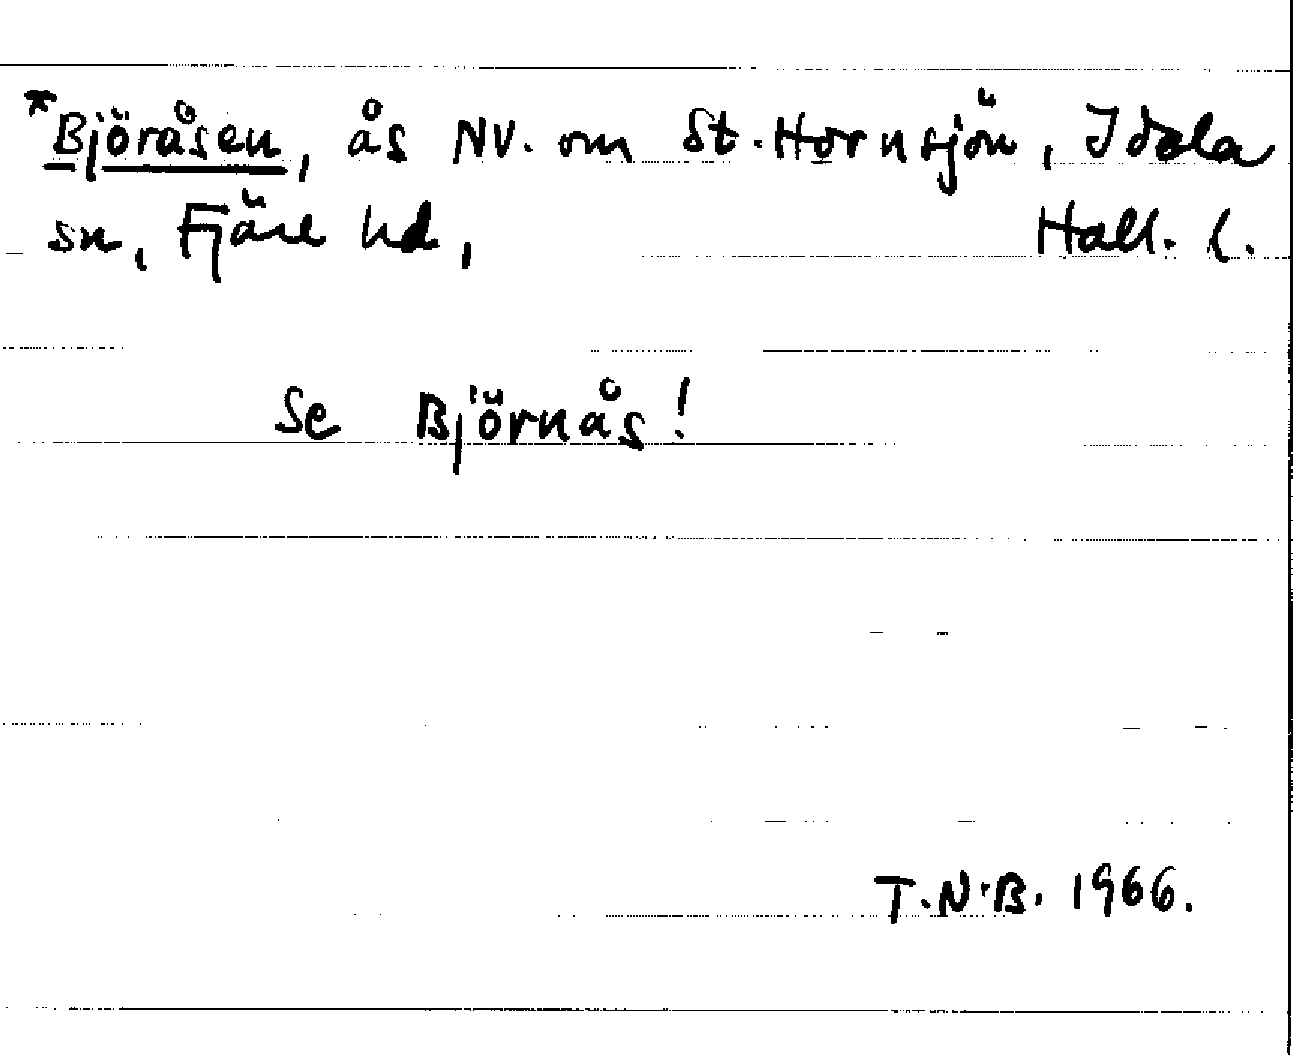 *Björåsen, ås NV. om St. Hornsjön, Idala
sn, Fjäre hd, Hall. l.
Se Björnås!
T.N.B. 1966.